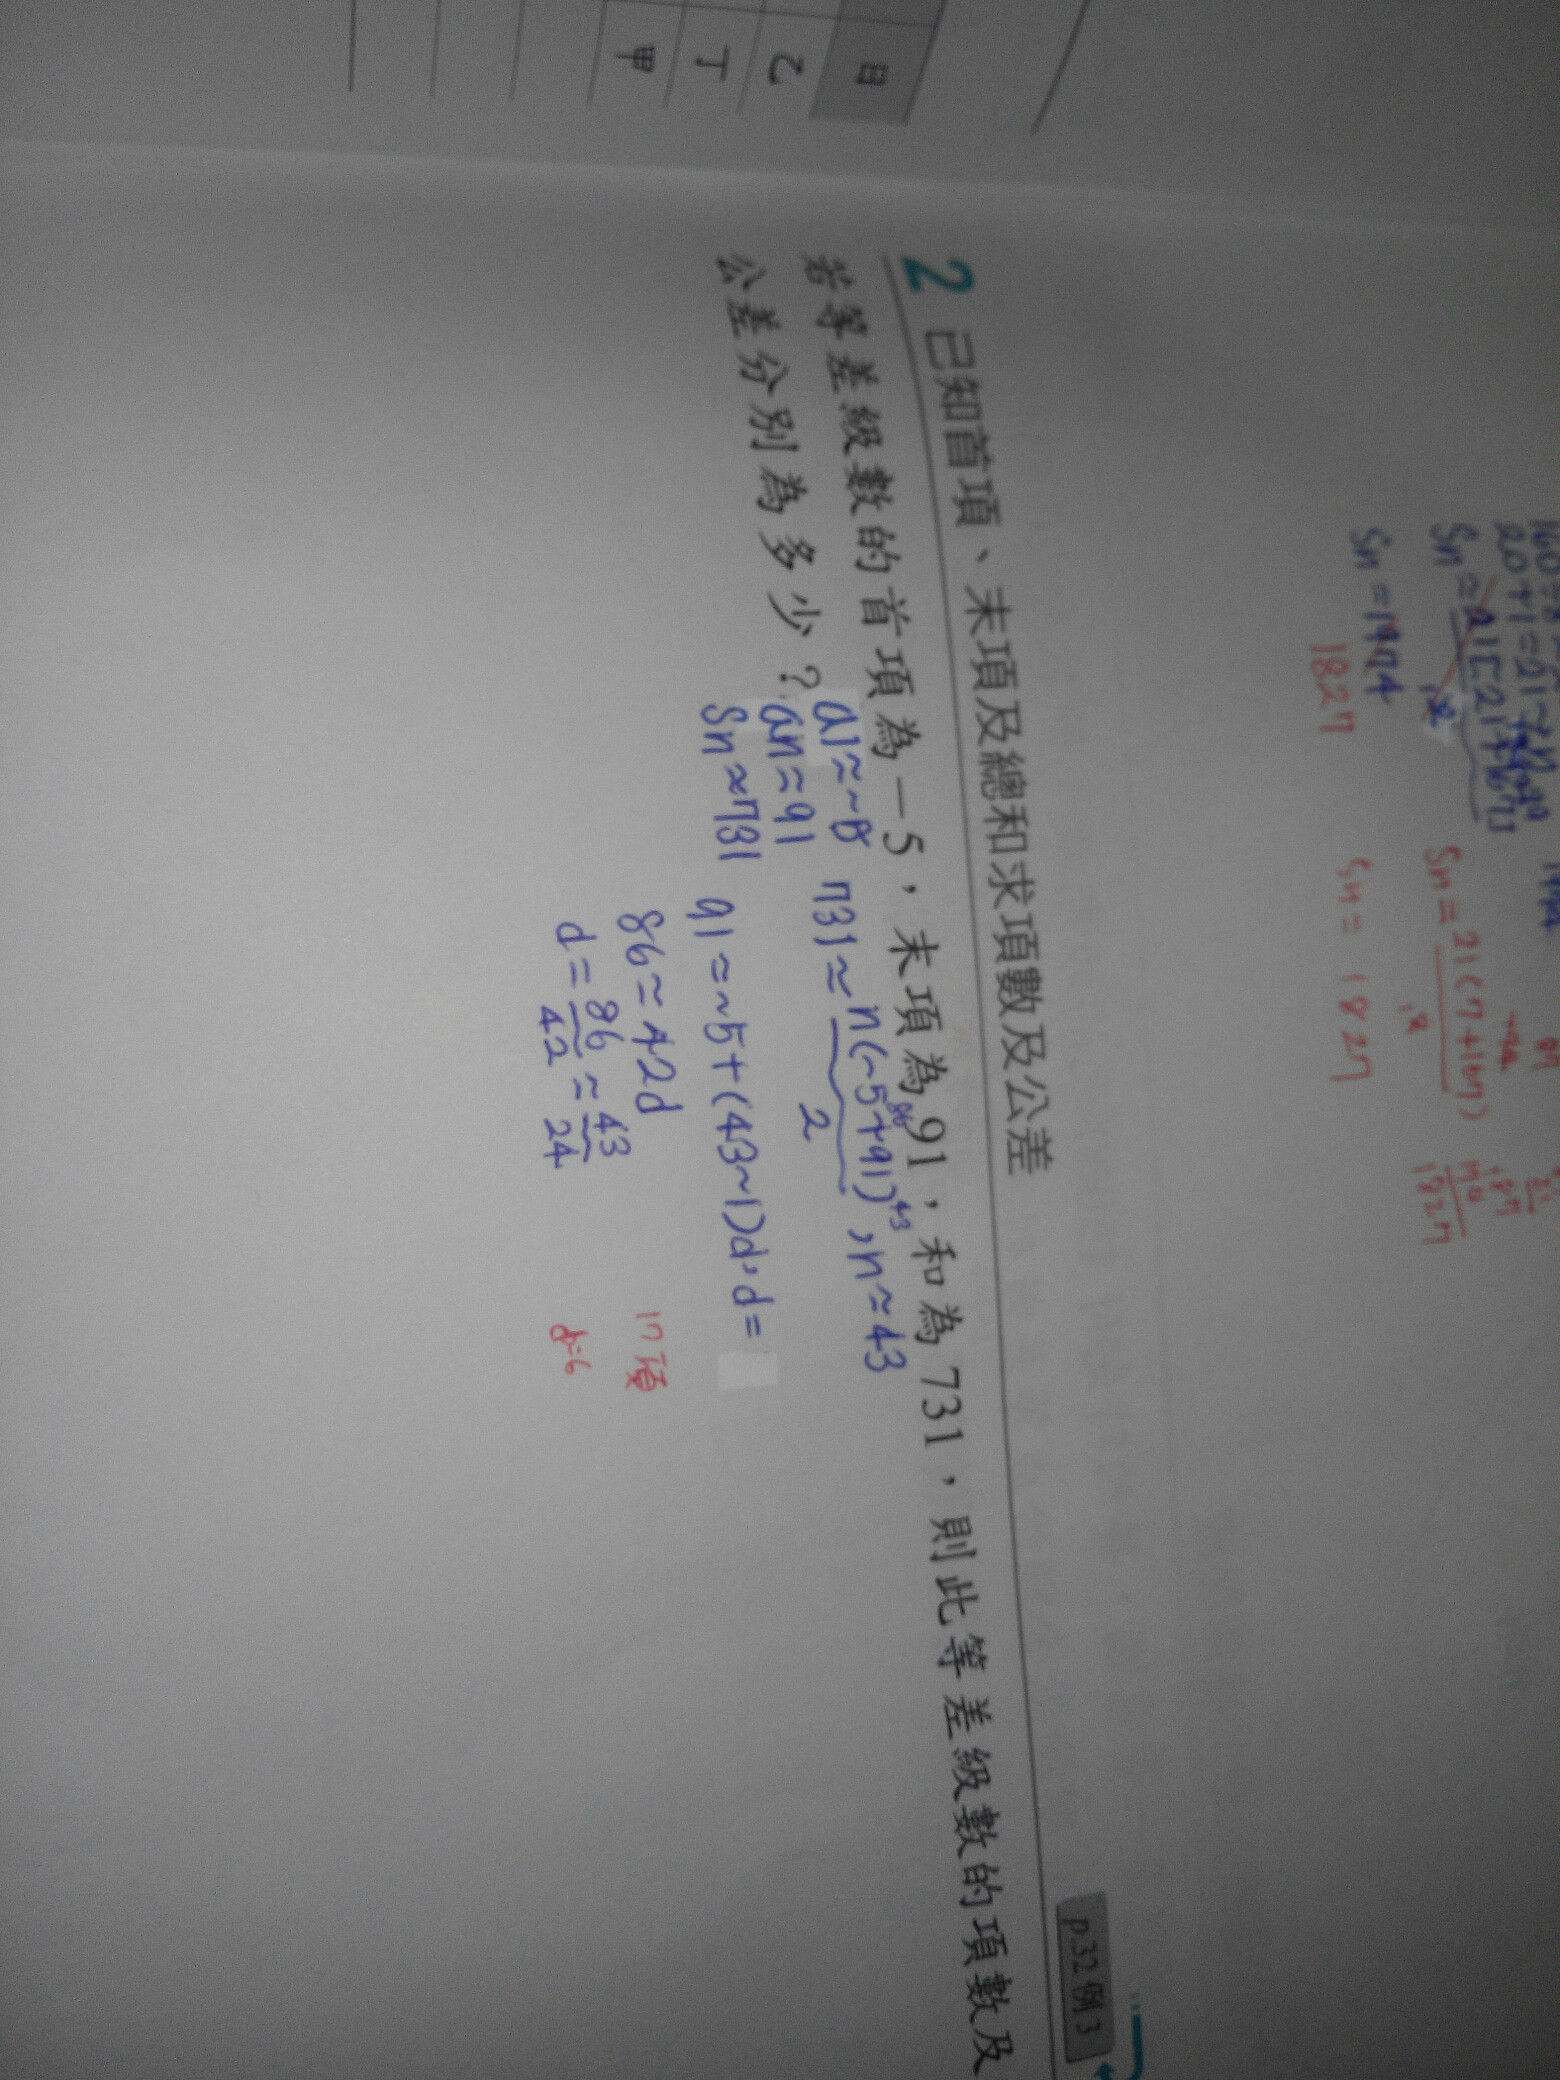 目
乙
丁
甲
20+1=21
Sn=1974
1827
Sn=21(7+167)
Sn=1827
1827
p.32 例 3
2 已知首項、末項及總和求項數及公差
若等差級數的首項為－5，末項為91，和為731，則此等差級數的項數及
公差分別為多少？
a1=-5
an=91
Sn=731
731=n(-5+91)
2
86
43
,n=43
91=-5+(43-1)d,d=
86=42d
d=86/42=43/24
17項
d=6